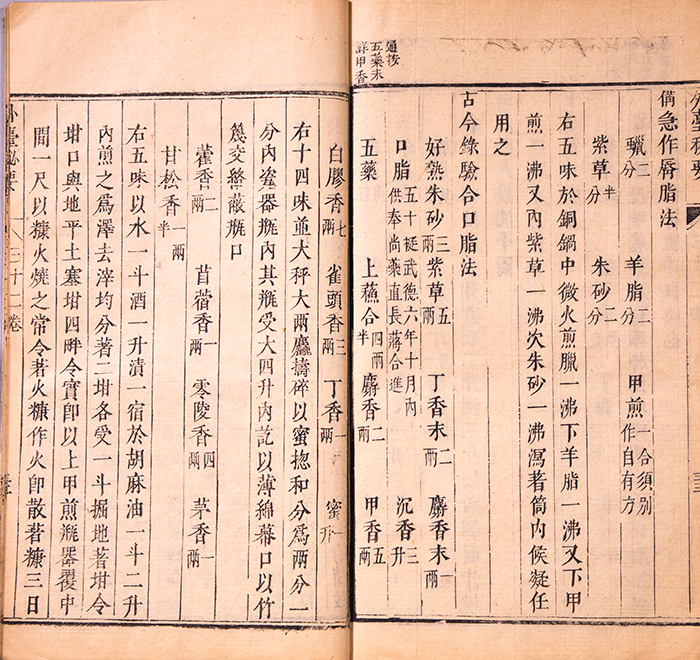 備急作脣脂法
蠟二分 羊脂二分 甲煎一合須別作自有方
紫草半分 朱砂二分
右五味於銅鍋中微火煎臘一沸下羊脂一沸又下甲
煎一沸又內紫草一沸次朱砂一沸瀉著筒內候凝任
用之
古今錄驗合口脂法
好熟朱砂三兩 紫草五兩 丁香末二兩 麝香末一兩
口脂五十挺武德六年十月內供奉尚藥直長蔣合進 沉香三升
五藥 上蘓合四兩半 麝香二兩 甲香五兩
通按
五藥未
詳甲香
白膠香七兩 雀頭香三兩 丁香一兩 蜜一升
右十四味並大秤大兩麤擣碎以蜜揔和分爲兩分一
分內瓷器瓶內其瓶受大四升內訖以薄綿幕口以竹
篾交絡蔽瓶口
藿香二兩 苜蓿香一兩 零陵香四兩 茅香一兩
甘松香一兩半
右五味以水一斗酒一升漬一宿於胡麻油一斗二升
內煎之爲澤去滓均分著二坩各受一斗掘地著坩令
坩口與地平土塞坩四畔令實卽以上甲煎瓶器覆中
間一尺以糠火燒之常令著火糠作火卽散著糠三日
外臺秘要
三十二卷